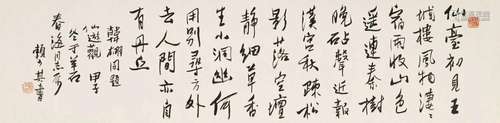 仙臺初見五
城樓風物淒淒
宿雨收山色
遥連秦樹
晚砧聲近報
漢宮秋疎松
影落空壇
靜細草香
生小洞幽何
用別尋方外
去人間亦自
有丹丘
韓翃同題
仙遊觀 甲子
冬于羊石
春海同志
賴少其書